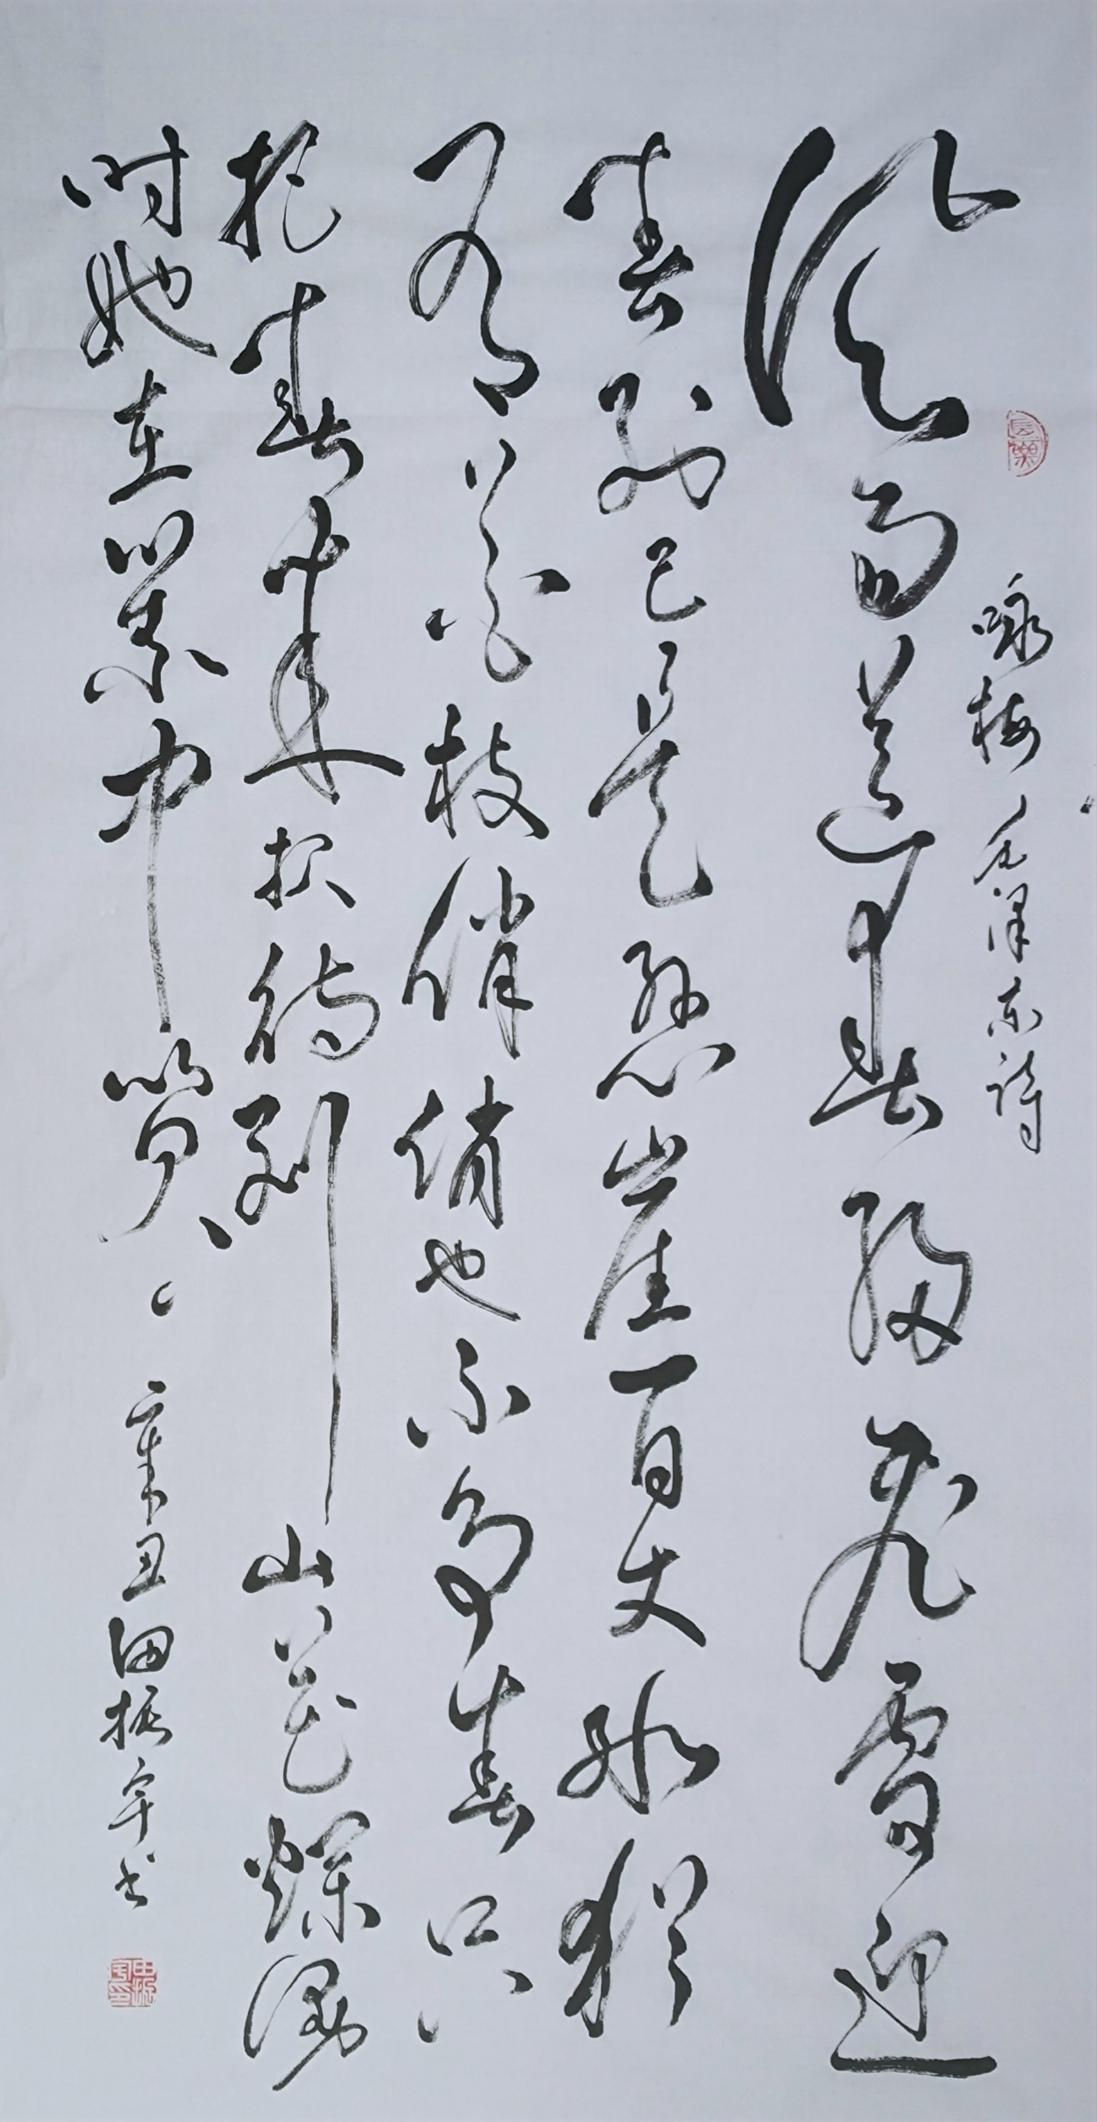 咏梅 毛泽东诗
長樂
风雨送春归飞雪迎
春到已是悬崖百丈冰犹
有花枝俏俏也不争春只
把春来报待到山花爛漫
时她在丛中笑 辛丑田振宇书
田振宇印